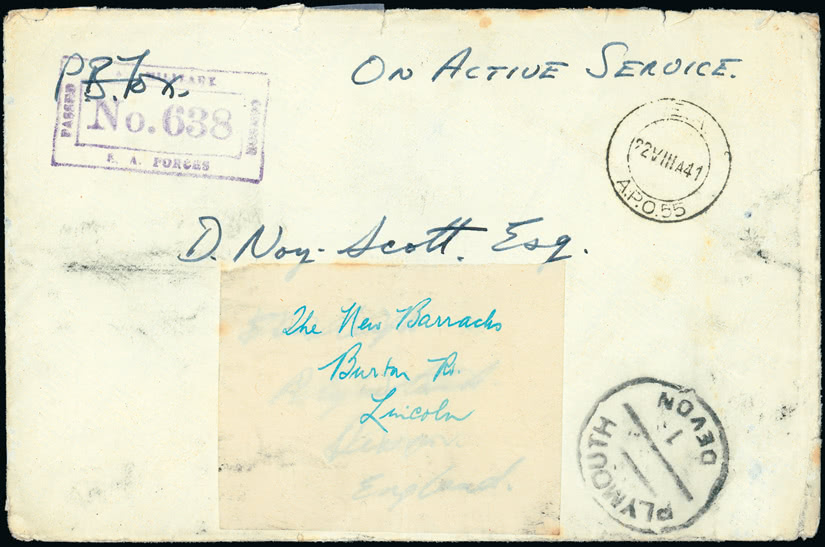 ON ACTIVE SERVICE.
MILITARY
PASSED
No. 638
CENSOR
E. A. FORCES
22VIIIA41
A.P.O.55
D. Noy-Scott, Esq.
The New Barracks
Burton Rd.
Lincoln
England.
PLYMOUTH
1
DEVON